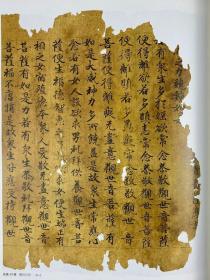 力巍巍
有衆生多於婬欲常念恭敬觀世音菩薩
便得離欲若多瞋恚常念恭敬觀世音菩薩
便得離瞋若多愚癡常念恭敬觀世音菩薩
便得離癡無盡意觀世音菩薩有
如是等大威神力多所饒益是故衆生常應心
念若有女人設欲求男礼拜供養觀世音菩
薩便生福德智慧之男設欲求女便生端正有
相之女宿殖德本衆人愛敬無盡意觀世音
菩薩有如是力若有衆生恭敬礼拜觀世音
菩薩福不唐捐是故衆生皆應受持觀世